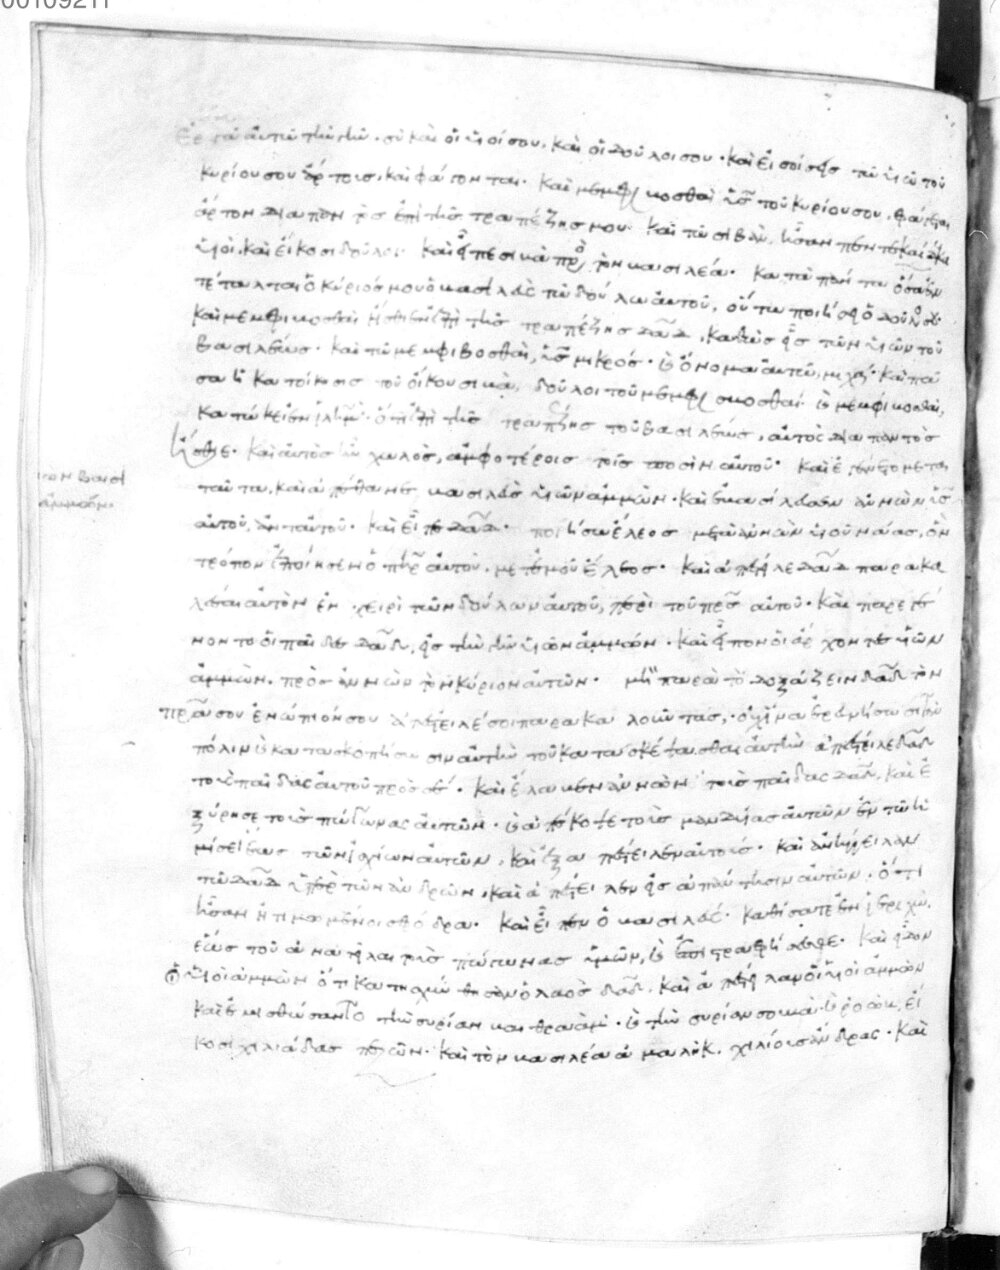 00109211
αὐτῷ τὴν γῆν · σὺ καὶ οἱ υἱοί σου, καὶ οἱ δοῦλοί σου · καὶ εἰσοίσεις τῷ υἱῷ τοῦ
κυρίου σου ἄρτους, καὶ φάγονται · καὶ μεμφιβοσθαὶ υἱὸς τοῦ κυρίου σου, φάγεται
ἄρτον διαπαντὸς ἐπὶ τῆς τραπέζης μου · καὶ τῷ σιβᾶ, ἦσαν πεντεκαίδεκα
υἱοὶ, καὶ εἴκοσι δοῦλοι · καὶ εἶπε σιβὰ πρὸς τὸν βασιλέα · κατὰ πάντα ὅσα
τέταλται ὁ κύριός μου ὁ βασιλεὺς τῷ δούλῳ αὐτοῦ, οὕτω ποιήσει ὁ δοῦλός σου ·
καὶ μεμφιβοσθαὶ ἤσθιεν ἐπὶ τῆς τραπέζης δαδ, καθὼς εἷς τῶν υἱῶν τοῦ
βασιλέως · καὶ τῷ μεμφιβοσθαὶ, υἱὸς μικρός · καὶ ὄνομα αὐτῷ, μιχά · καὶ πᾶ
σα ἡ κατοίκησις τοῦ οἴκου σιβὰ, δοῦλοι τοῦ μεμφιβοσθαί · καὶ μεμφιβοσθαὶ,
κατῴκει ἐν ιλημ · ὅτι ἐπὶ τῆς τραπέζης τοῦ βασιλέως, αὐτὸς διαπαντὸς
ἤσθιε · καὶ αὐτὸς ἦν χωλὸς, ἀμφοτέροις τοῖς ποσὶν αὐτοῦ · καὶ ἐγένετο μετὰ
ταῦτα, καὶ ἀπέθανε βασιλεὺς υἱῶν ἀμμών · καὶ ἐβασίλευσεν ἀννὼν υἱὸς
αὐτοῦ, ἀντ' αὐτοῦ · καὶ εἶπε δαδ · ποιήσω ἔλεος μετὰ ἀννὼν υἱοῦ ναάς, ὃν
τρόπον ἐποίησεν ὁ πηρ αὐτοῦ, μετ' ἐμοῦ ἔλεος · καὶ ἀπέστειλε δαδ παρακα
λέσαι αὐτὸν ἐν χειρὶ τῶν δούλων αὐτοῦ, περὶ τοῦ πρς αὐτοῦ · καὶ παρεγέ
νοντο οἱ παῖδες δαδ, εἰς τὴν γῆν υἱῶν ἀμμών · καὶ εἶπον οἱ ἄρχοντες υἱῶν
ἀμμών · πρὸς ἀννὼν τὸν κύριον αὐτῶν · μὴ παρὰ τὸ δοξάζειν δαδ τὸν
πρα σου ἐνώπιόν σου ἀπέστειλέ σοι παρακαλοῦντας,
πόλιν καὶ κατασκοπήσωσιν αὐτὴν τοῦ κατασκέψασθαι αὐτὴν ἀπέστειλε δαδ
τοὺς παῖδας αὐτοῦ πρὸς σέ · καὶ ἔλαβεν ἀννὼν τοὺς παῖδας δαδ, καὶ ἐ
ξύρησε τοὺς πώγωνας αὐτῶν · καὶ ἀπέκοψε τοὺς μανδύας αὐτῶν ἐν τῷ ἡ
μίσει ἕως τῶν ἰσχίων αὐτῶν, καὶ ἐξαπέστειλεν αὐτούς · καὶ ἀνήγγειλαν
τῷ δαδ ὑπὲρ τῶν ἀνδρῶν, καὶ ἀπέστειλεν εἰς ἀπάντησιν αὐτῶν, ὅτι
ἦσαν ἠτιμωμένοι σφόδρα · καὶ εἶπεν ὁ βασιλεύς · καθίσατε ἐν ἰεριχῷ,
ἕως τοῦ ἀνατεῖλαι τοὺς πώγωνας ὑμῶν, καὶ ἐπιστραφήσεσθε · καὶ εἶδον
οἱ υἱοὶ ἀμμὼν ὅτι κατῃσχύνθησαν ὁ λαὸς δαδ, καὶ ἀπέστειλαν οἱ υἱοὶ ἀμμὼν
καὶ ἐμισθώσαντο τὴν συρίαν καὶ · καὶ τὴν συρίαν σουβὰ · καὶ ροὼβ, εἴ
κοσι χιλιάδας πεζῶν · καὶ τὸν βασιλέα ἀμαλὴκ, χιλίους ἄνδρας · καὶ